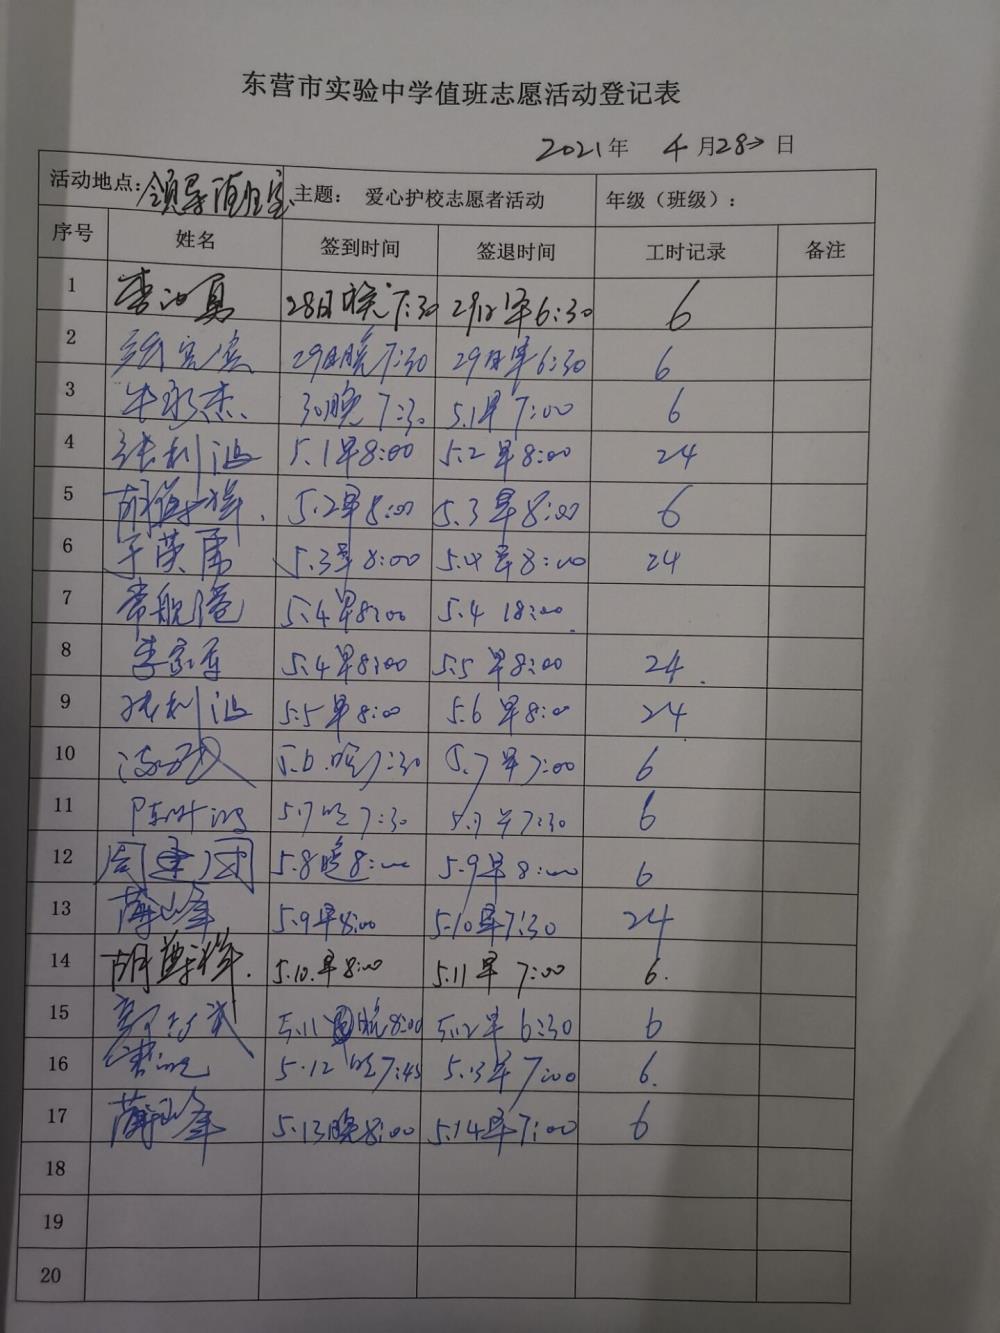 东营市实验中学值班志愿活动登记表
2021年 4月28日
活动地点：领导值班室 主题： 爱心护校志愿者活动 年级（班级）：
序号 姓名 签到时间 签退时间 工时记录 备注
1 28日晚7:30 29日早6:30 6
2 29日晚7:30 29日早6:30 6
3 牛永杰 30晚7:30 5.1早7:00 6
4 张利波 5.1早8:00 5.2早8:00 24
5 5.2早8:00 5.3早8:00 6
6 于英勇 5.3早8:00 5.4早8:00 24
7 5.4早8:00 5.4 18:00
8 李家军 5.4早8:00 5.5早8:00 24
9 张利波 5.5早8:00 5.6早8:00 24
10 5.6.晚7:30 5.7早7:00 6
11 5.7晚7:30 7:30 6
12 周建团 5.8晚8:00 5.9早8:00 6
13 薄山峰 5.9早8:00 5.10早7:30 24
14 5.10.早8:00 5.11早7:00 6.
15 5.11晚8:00 5.12早6:30 6
16 5.12晚7:45 5.13早7:00 6.
17 薄山峰 5.13晚8:00 5.14早7:00 6
18
19
20